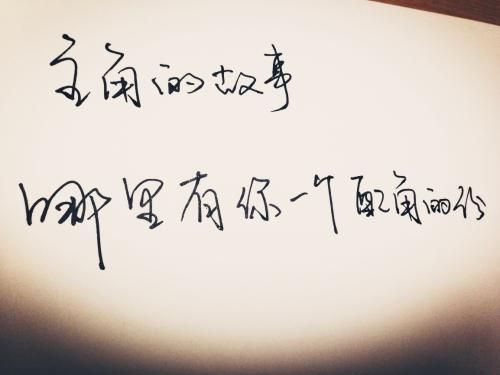 主角的故事
哪里有你一个配角的份